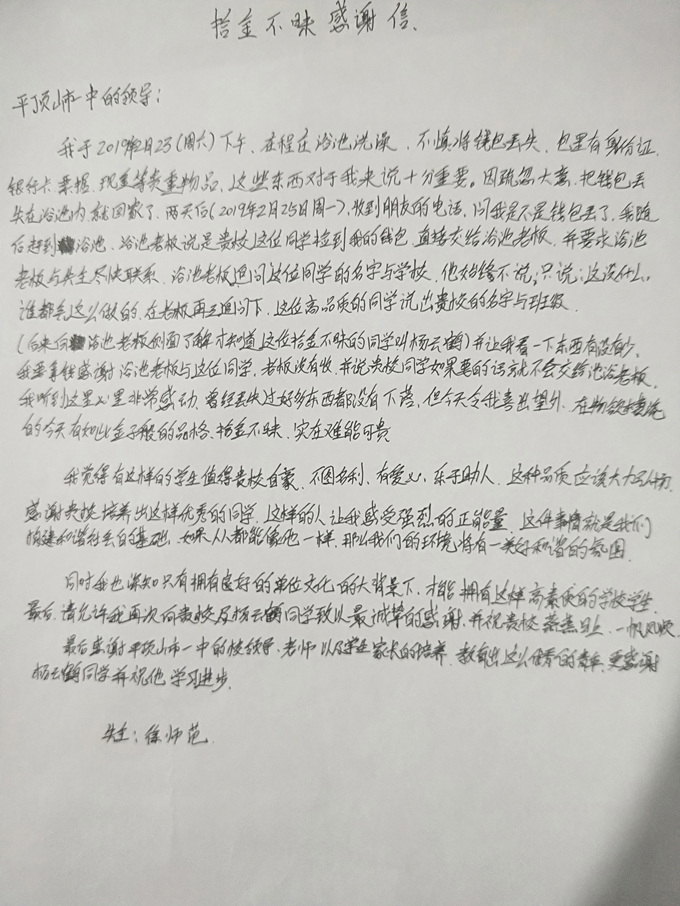 拾金不昧感谢信.
平顶山市一中的领导：
我于2019年2月23(周六)下午、在程庄浴池洗澡、不慎将钱包丢失、包里有身份证、
银行卡票据、现金等贵重物品，这些东西对于我来说十分重要。因疏忽大意、把钱包丢
失在浴池内就回家了、两天后(2019年2月25日周一)、收到朋友的电话、问我是不是钱包丢了，我随
后赶到浴池、浴池老板说是贵校这位同学捡到我的钱包、直接交给浴池老板、并要求浴池
老板与失主尽快联系、浴池老板追问这位同学的名字与学校、他始终不说；只说；这没什么，
谁都会这么做的、在老板再三追问下、这位高品质的同学说出贵校的名字与班级、
(后来向浴池老板侧面了解才知道这位拾金不昧的同学叫杨云鹤)并让我看一下东西有没有少、
我要拿钱感谢浴池老板与这位同学、老板没有收、并说贵校同学如果要的话就不会交给浴池老板、
我听到这里心里非常感动、曾经丢失过好多东西都没有下落、但今天令我喜出望外、在物欲横流
的今天有如此金子般的品格、拾金不昧、实在难能可贵
我觉得有这样的学生值得贵校自豪、不图名利、有爱心、乐于助人、这种品质应该大力弘扬、
感谢贵校培养出这样优秀的同学、这样的人让我感受强烈的正能量、这件事情就是我们
构建和谐社会的基础、如果人人都能像他一样、那么我们的环境将有一美好和谐的氛围、
同时我也深知只有拥有良好的单位文化的大背景下、才能拥有这样高素质的学校学生、
最后、请允许我再次向贵校及杨云鹤同学致以最诚挚的感谢、并祝贵校蒸蒸日上、一帆风顺、
最后感谢平顶山市一中的校领导、老师以及学生家长的培养、教育出这么优秀的青年、更感谢
杨云鹤同学并祝他学习进步、
失主：徐师范